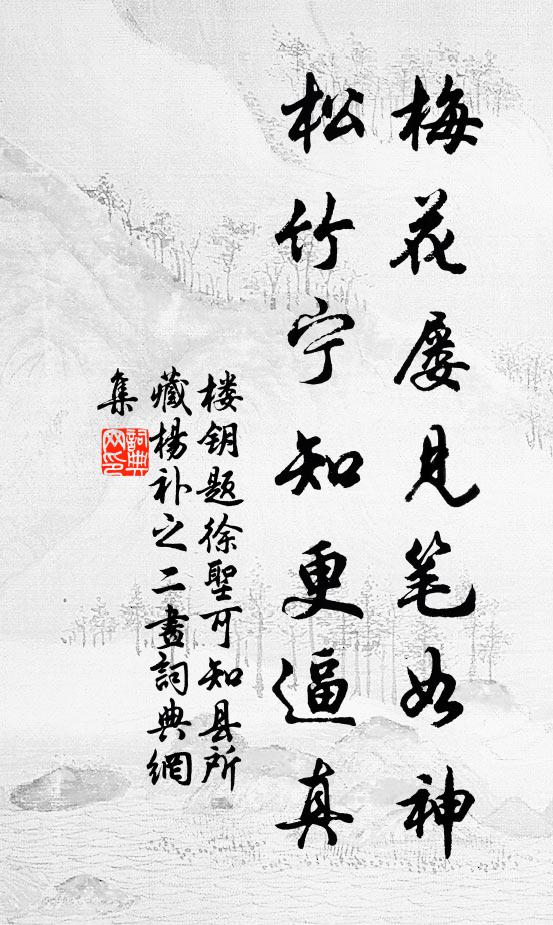 梅花屡见笔如神
松竹宁知更逼真
楼钥题徐聖可知县所
藏杨补之二畫詞典網
集
詞典网印